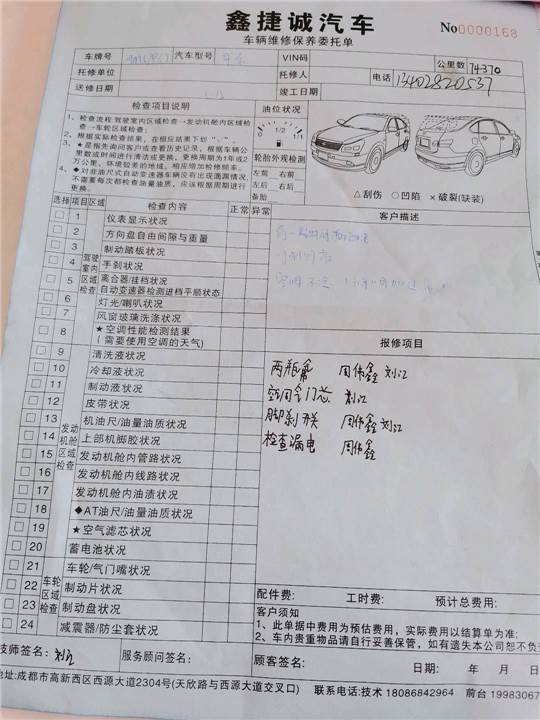 鑫捷诚汽车
车辆维修保养委托单
No0000168
车牌号 汽车型号 VIN码 公里数 74370
托修单位 托修人 电话 13402820537
送修日期 竣工日期
检查项目说明
1、检查流程:驾驶室内区域检查→发动机舱内区域检查→车轮区域检查;
2、根据实际检查结果,在相应结果下划“√”;
3、★是指先询问客户或查看历史记录,根据车辆公里数或时间进行清洁或更换,更换周期为1年或2万公里,环境较差的地域,相应增加检修频率。
4、◆对非油尺式自动变速器车辆没有出现泄漏情况,不需要每次都检查测量油质,应该根据周期进行更换。
油位状况
0 1/2 1/1
轮胎外观检测
左前 右前
左后 右后
备胎
△刮伤 ○凹陷 ×破裂(缺装)
选择 项目区域 检查内容 正常 异常
客户描述
驾驶室内区域检查
1 仪表显示状况
2 方向盘自由间隙与重量
3 制动踏板状况
4 手刹状况
5 离合器/挂档状况
自动变速器检测进档平顺状态
6 灯光/喇叭状况
7 风窗玻璃洗涤状况
8 ★空调性能检测结果
(需要使用空调的天气)
报修项目
发动机舱区域检查
9 清洗液状况
10 冷却液状况
11 制动液状况
12 皮带状况
13 机油尺/油量油质状况
14 上部机脚胶状况
15 发动机舱内管路状况
16 发动机舱内线路状况
17 发动机舱内油渍状况
18 ◆AT油尺/油量油质状况
19 ★空气滤芯状况
20 蓄电池状况
车轮区域检查
21 车轮/气门嘴状况
22 制动片状况
23 制动盘状况
24 减震器/防尘套状况
两瓶氟 周伟鑫 刘江
空调气门芯 刘江
脚刹开关 周伟鑫 刘江
检查漏电 周伟鑫
配件费: 工时费: 预计总费用:
客户须知
1、此单据中费用为预估费用,实际费用以结算单为准;
2、车内贵重物品请自行妥善保管,如有遗失本公司恕不负
技师签名: 刘江 服务顾问签名: 顾客签名: 日期: 年 月
地址:成都市高新西区西源大道2304号(天欣路与西源大道交叉口) 联系电话:技术 18086842964 前台 19983067